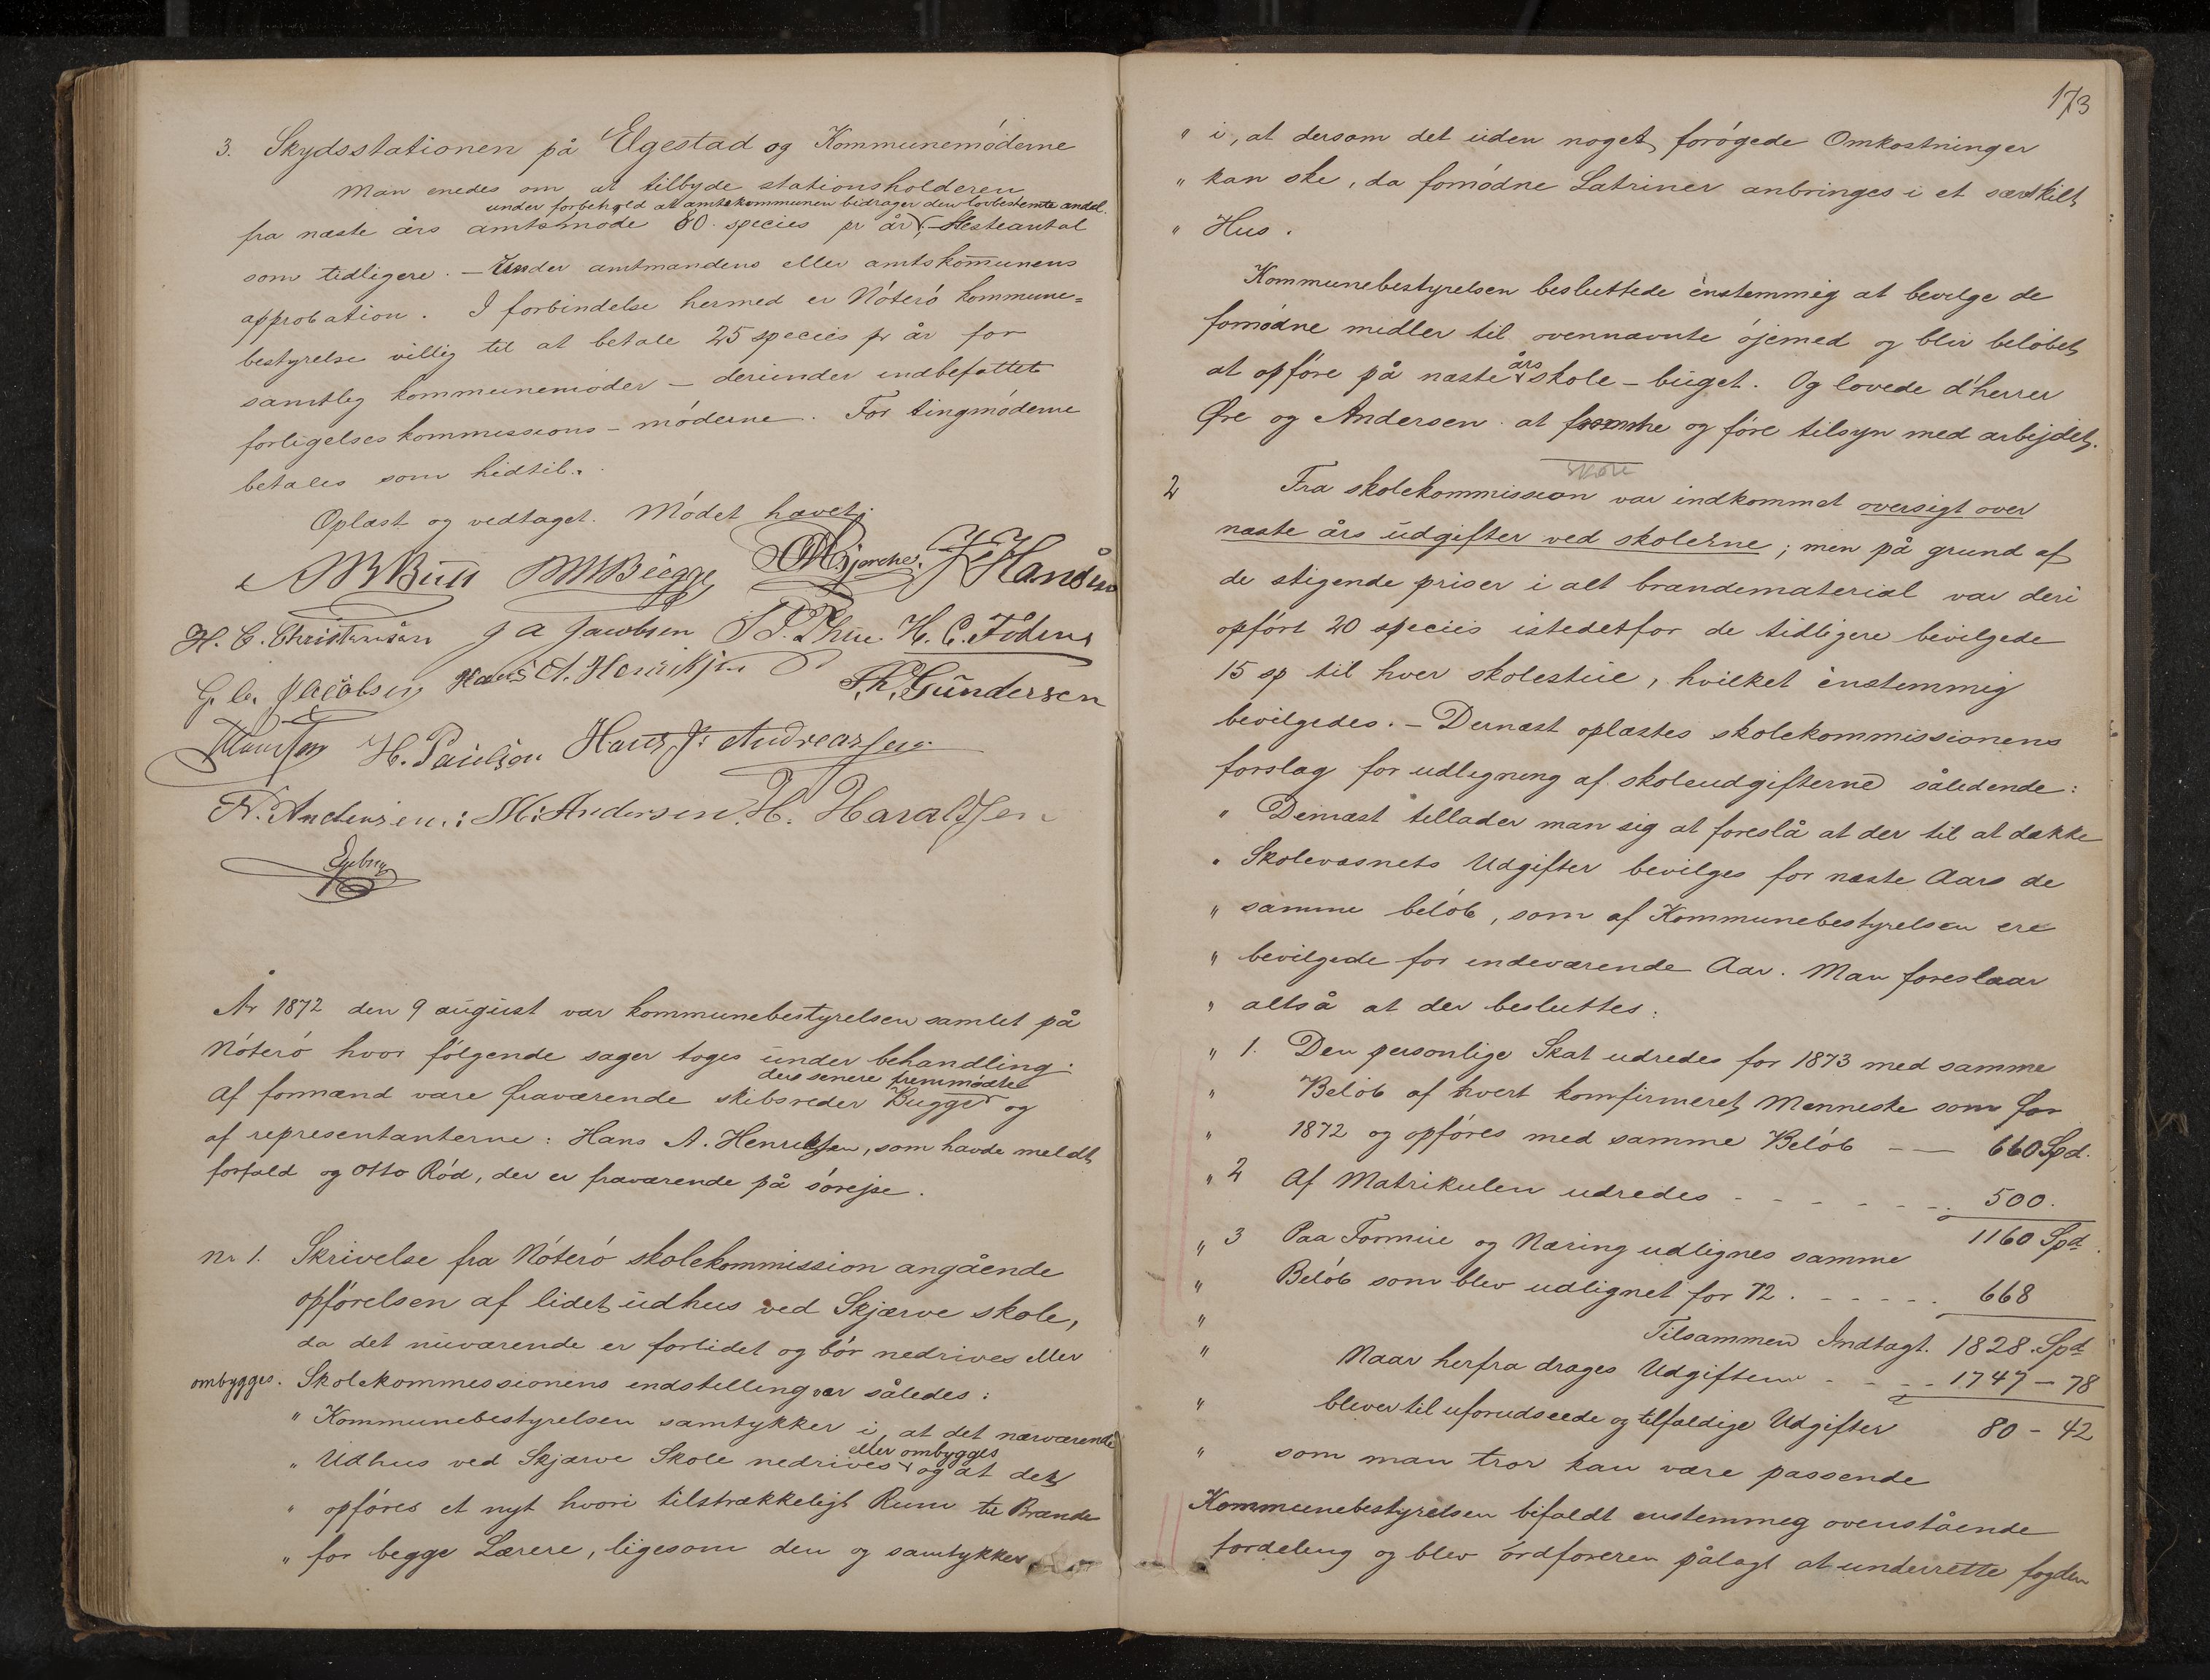 3. Skydsstationen på Elgestad og Kommunemöderne
Man enedes om at tilbyde stationsholderen
under forbehold at amtskommunen bidrager den lovbestemte andel.
fra næste års amtsmöde 80 species pr år, Hesteantal
som tidligere. – Under amtmandens eller amtskommunens
approbation. I forbindelse hermed er Nöterö kommune=
bestyrelse villig til at betale 25 species pr år for
samtlig kommunemöder – derunder indbefattet
forligelseskommissions-möderne. For tingmöderne
betales som hidtil.
Oplæst og vedtaget. Mödet hævet.
A B Bull M Bugge
H. C. Christensen J A Jacobsen H. C. Födens
Jacobsen Hans A. Henriksen Gundersen
H. Paulson Hans J: Andreassen
N. Andersen: M: Andersen. H. Haraldsen
År 1872 den 9 august var kommunebestyrelsen samlet på
Nöterö hvor fölgende sager toges under behandling:
der senere fremmödte
Af formænd vare fraværende skibsreder Bugge og
af representanterne: Hans A. Henriksen, som havde meldt
forfald og Otto Röd, der er fraværende på sörejse.
Nr 1. Skrivelse fra Nöterö skolekommission angående
opförelsen af lidet udhus ved Skjærve skole,
da det nuværende er forlidet og bör nedrives eller
ombygges. Skolekommissionens indstilling var således:
" Kommunebestyrelsen samtykker i, at det nærværende
eller ombygges
" Udhus ved Skjærve Skole nedrives og at det
" opföres et nyt hvori tilstrækkeligt Rum til Brænde
" for begge Lærere, ligesom den og samtykker
173
" i, at dersom det uden noget forögede Omkostninger
" kan ske, da fornödne Latriner anbringes i et særskilt
" Hus.
Kommunebestyrelsen besluttede énstemmig at bevilge de
fornödne midler til ovennævnte öjemed og blir belöbet
års
at opföre på næste skole-buget. Og lovede d'herrer
Öre og Andersen at fremme og före tilsyn med arbejdet.
skole
2 Fra skolekommission var indkommet oversigt over
næste års udgifter ved skolerne; men på grund af
de stigende priser i alt brandematerial var deri
opfört 20 species istedetfor de tidligere bevilgede
15 sp til hver skolestue, hvilket énstemmig
bevilgedes. – Dernæst oplæstes skolekommissionens
forslag for udligning af skoleudgifterne således:
" Dernæst tillader man sig at foreslå at der til at dække
" Skolevæsnets Udgifter bevilges for næste Aars de
" samme belöb, som af Kommunebestyrelsen ere
" bevilgede for indeværende Aar. Man foreslaar
" altså at der besluttes:
" 1. Den personlige Skat udredes for 1873 med samme
" Belöb af hvert komfirmeret Menneske som for
" 1872 og opföres med samme Belöb – – 660 Spd.
" 2 Af Matrikulen udredes - - - - - - 500.
1160 Spd.
" 3 Paa Formue og Næring udlignes samme
" Belöb som blev udlignet for 72. - - - - - 668
" Tilsammen Indtægt. 1828. Spd
" Naar herfra drages Udgiften - - - 1747 – 78
" bliver til uforudseede og tilfældige Udgifter 80 – 42
" som man tror kan være passende
Kommunebestyrelsen bifaldt enstemmeg ovenstående
fordeling og blev ordföreren pålagt at underrette fogden